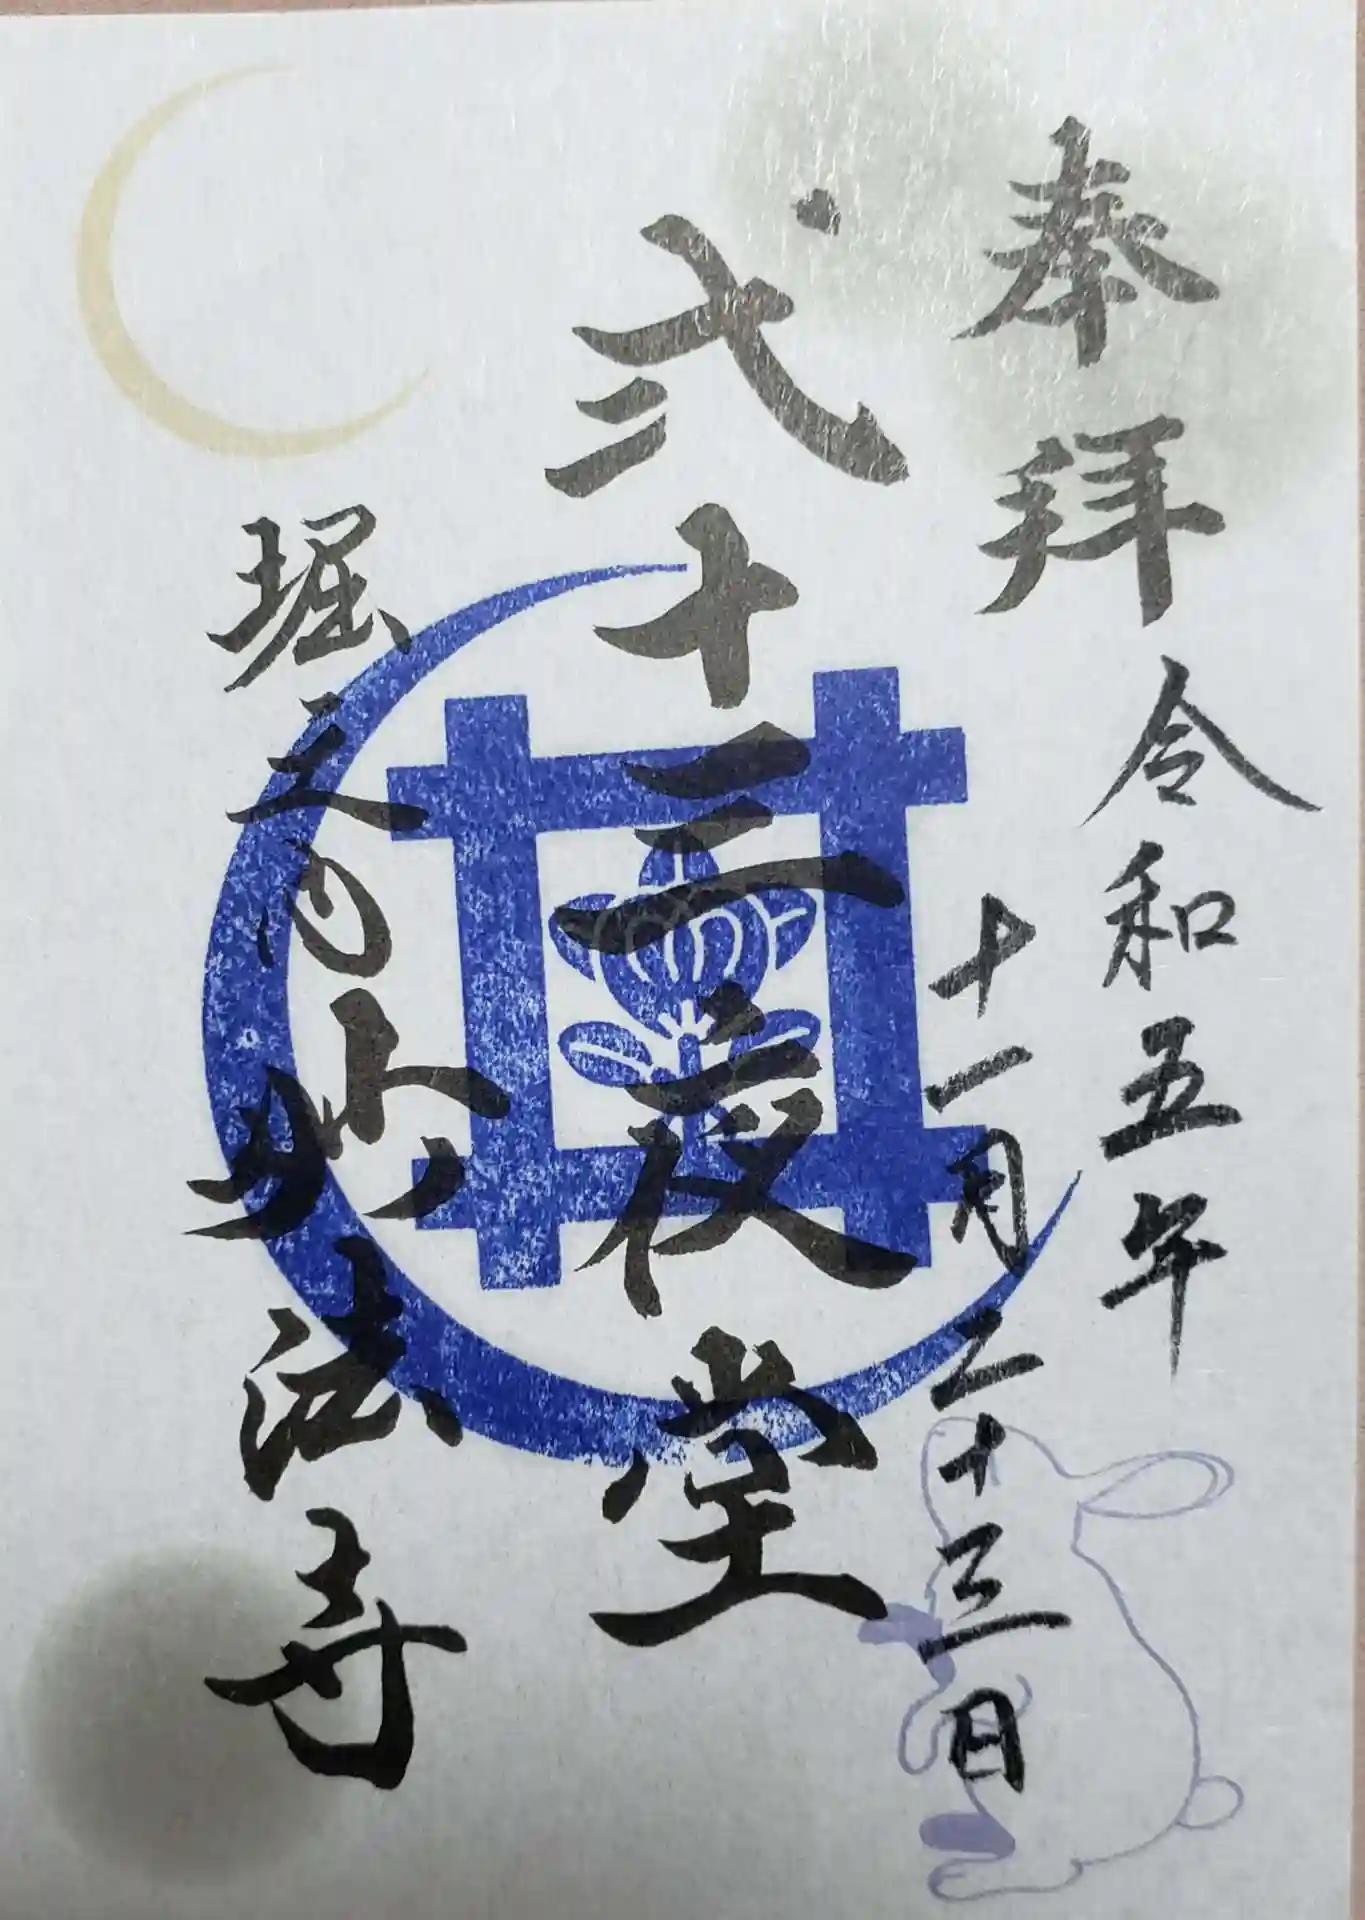 奉拜
令和五年
十一月二十三日
弐十三夜堂
堀之内妙法寺